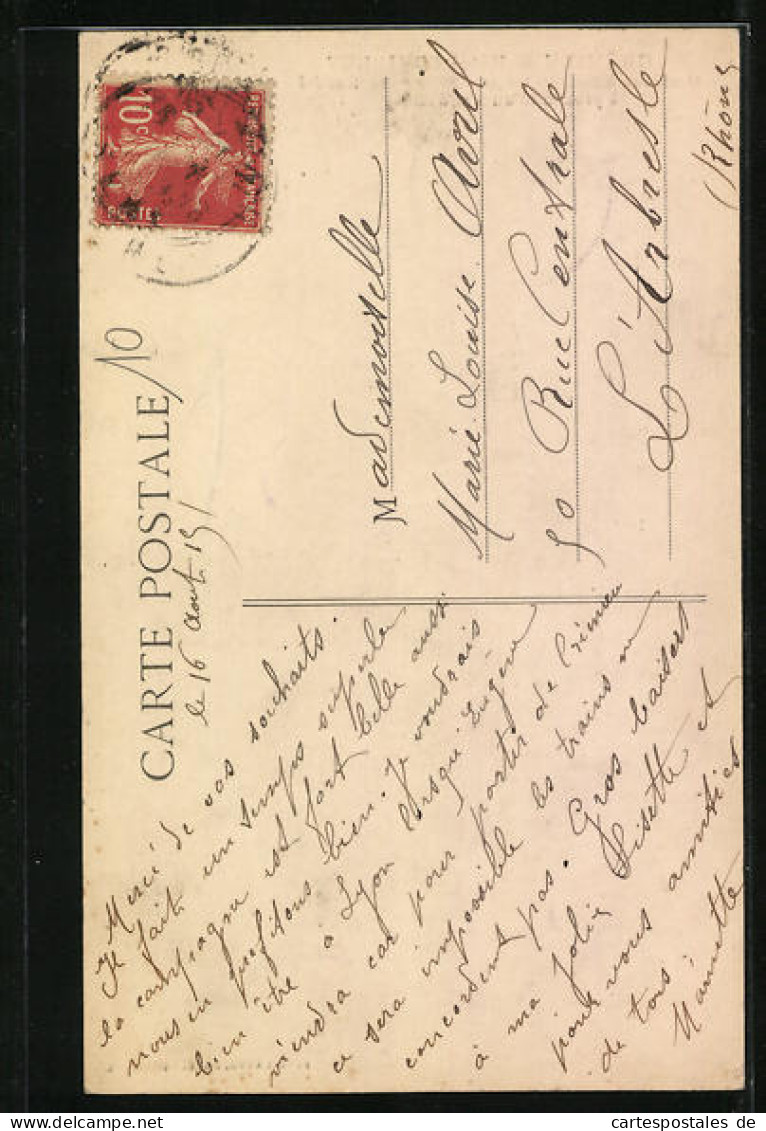 CARTE POSTALE
10
le 16 Aout 151
10c
REPUBLIQUE FRANÇAISE
POSTES
Mademoiselle
Marie-Louise Avril
50 Rue Centrale
L'Arbresle
(Rhône
Merci de vos souhaits.
Il fait un temps superbe
la campagne est fort belle aussi
nous en profitons bien. Je voudrais
bien être à Lyon lorsqu'Eugène
viendra car pour partir de Crémieu
ce sera impossible les trains ne
concordent pas. Gros baisers
à ma jolie Lisette et
pour vous amitiés
de tous.
cartespostales de